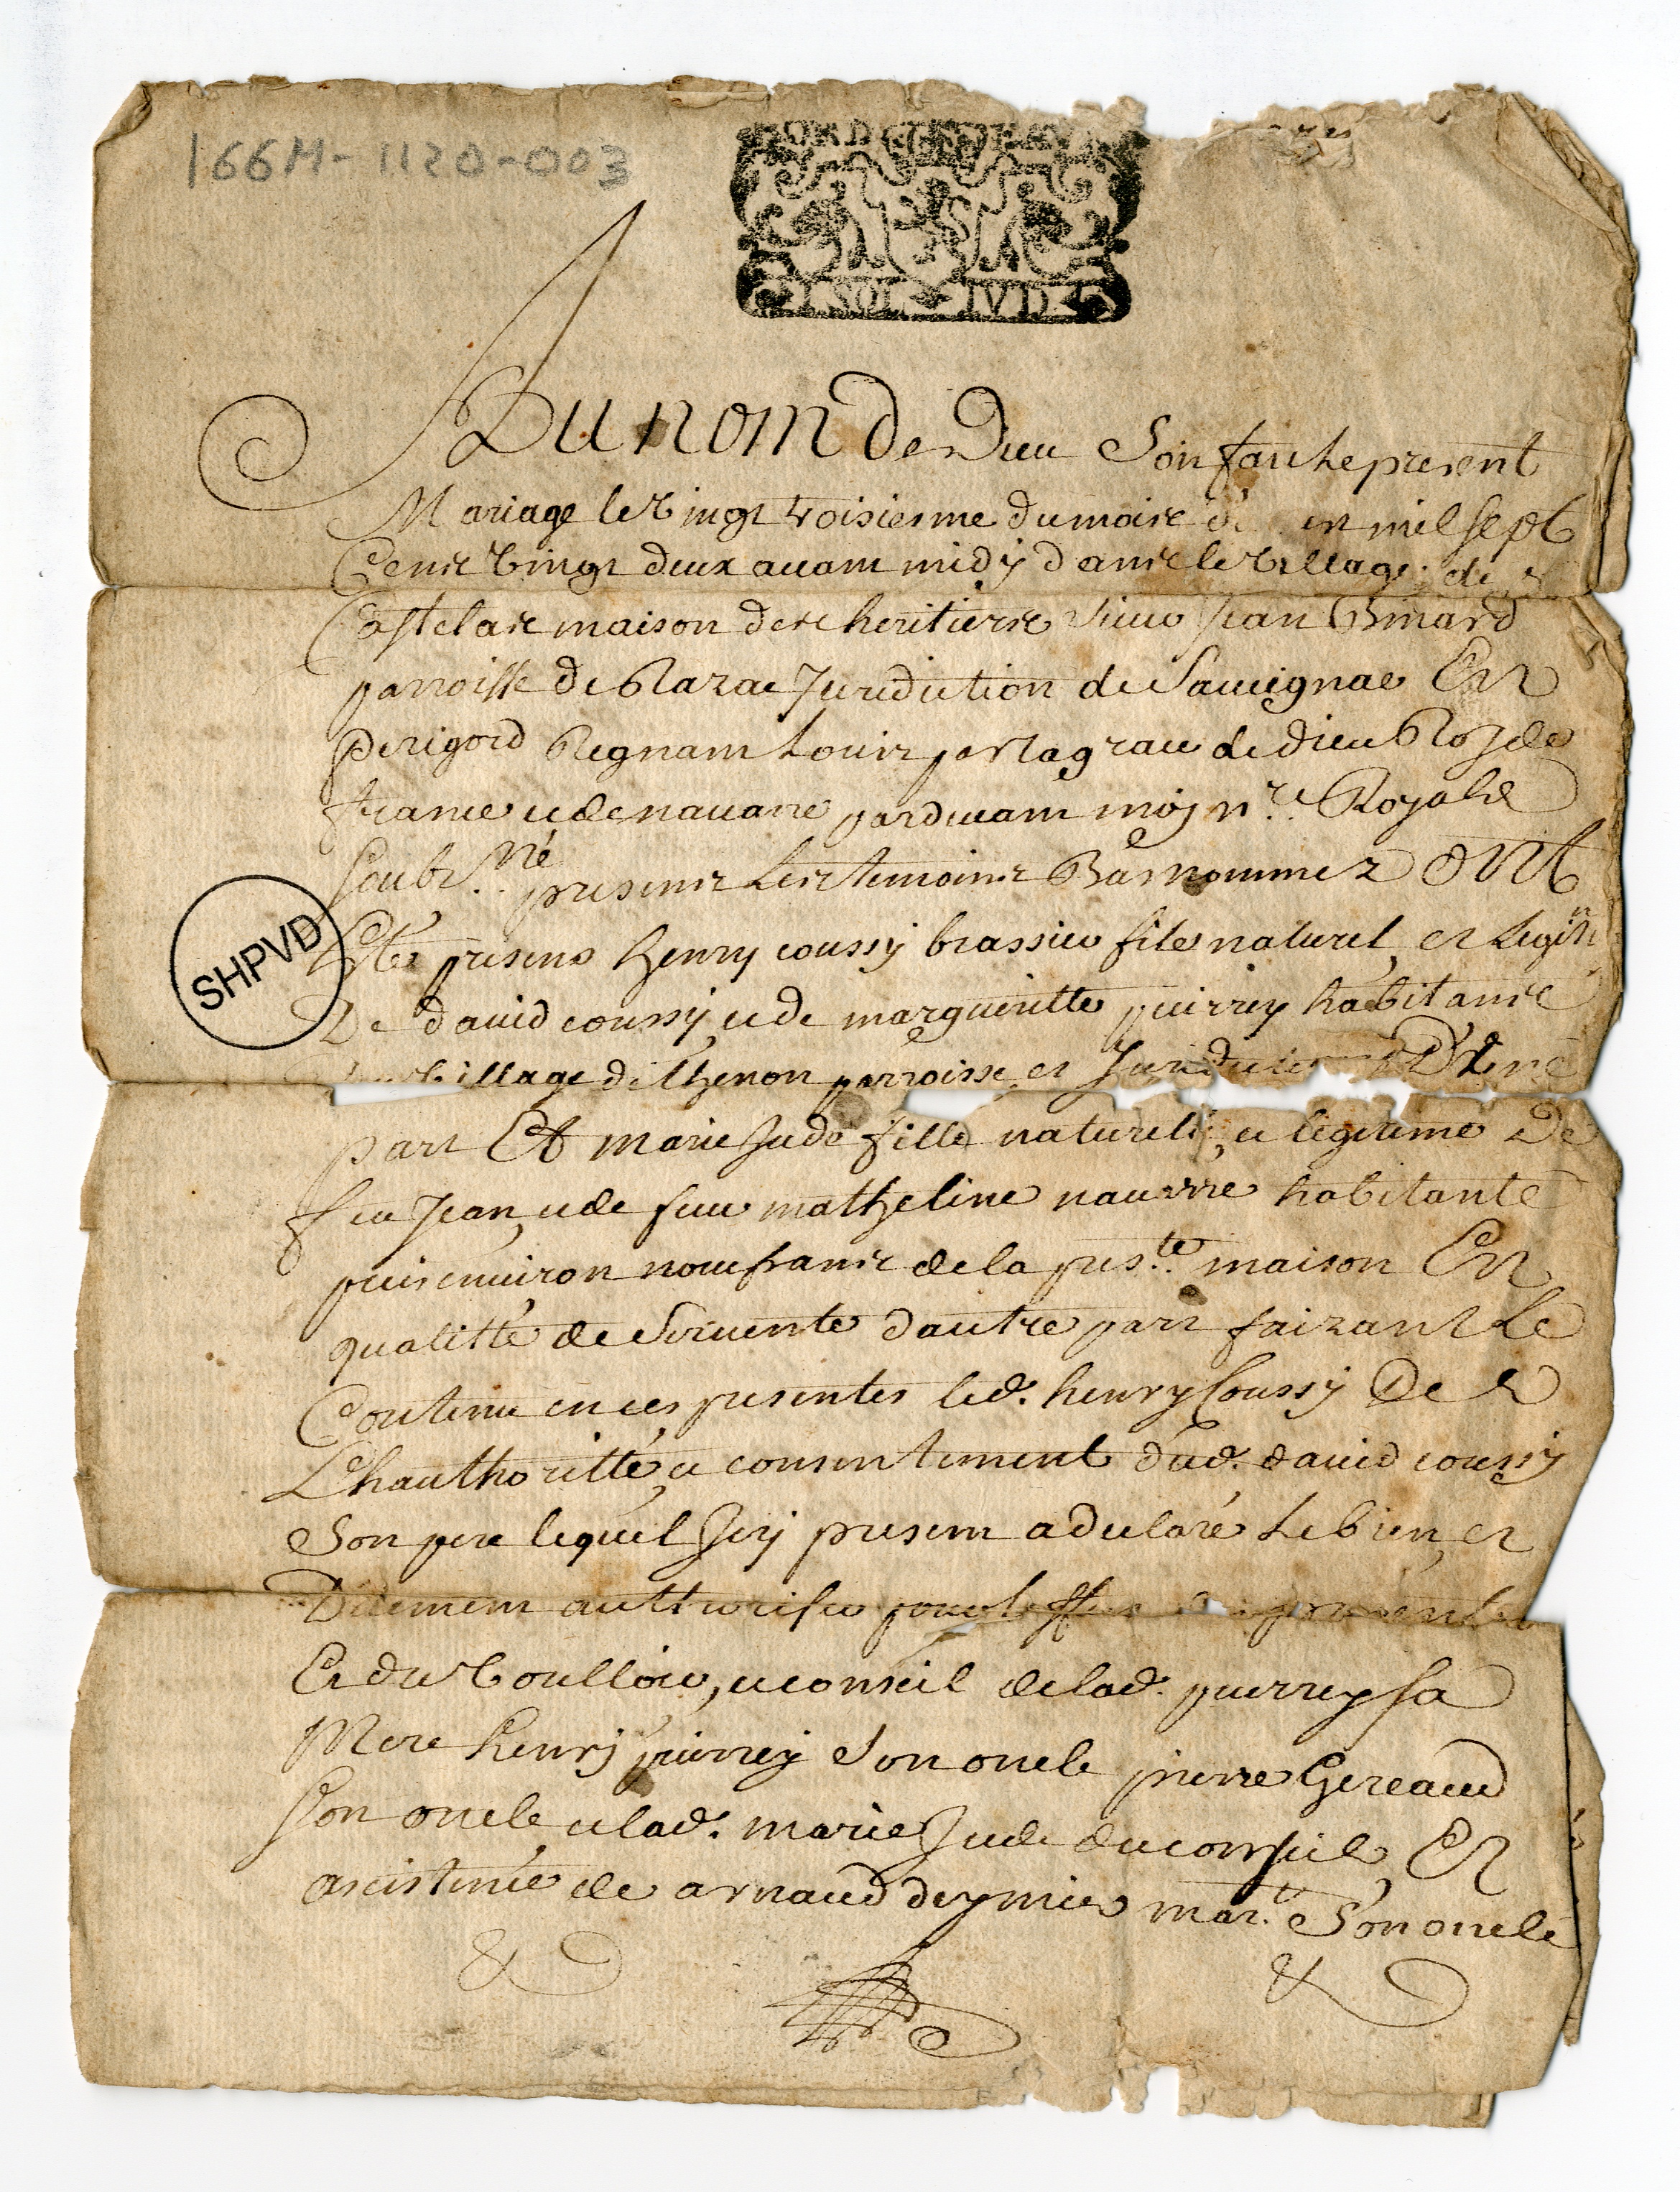 166M-1120-003
1 SOL IVD
Au nom de Dieu Soit fait le present
Mariage le vingt troisiesme du mois d en mil sept
Cens vingt deux avant midy dans le village de
Castelas maison des heritiers sieur Jean
parroisse de Razac Juridiction de Sauvignac En
Perigord Regnant Louis par la grace de dieu Roy de
france et de navarre pardevant moy nre Royal
soubs.né presens Les temoins Bas nommez ont
Este presens henry coussy brassier fils naturel et Legit.
De david coussy et de margueritte peirrey habitans
village de thenon parroisse et Juridiction D'une
part Et marie Jude fille naturelle et legitime De
feu Jean et de feue matheline navarre habitante
puis environ neuf ans de la pres.te maison En
qualitté de Servente d'autre part faizant Le
Contenu en ces presentes led. henry Coussy De
L'hauthoritté et consentement dud. david coussy
Son pere lequel Jcy present a declaré Le bien et
Duement authoriser pour leffet
Et du voulloir, et conseil de lad. peirrey sa
Mere henry peirrey Son oncle pierre Gereaud
Son oncle et lad. marie Jude du conseil Et
ascistence de arnaud deymier mar. Son oncle
SHPVD